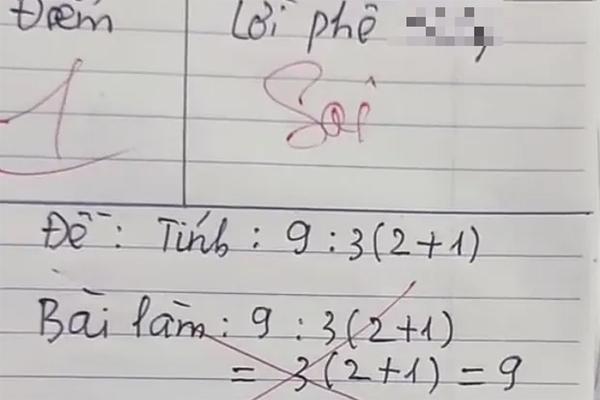 Điểm
Lời phê
1
Sai
Đề: Tính: 9 : 3(2+1)
Bài làm: 9 : 3(2+1)
= 3(2+1) = 9